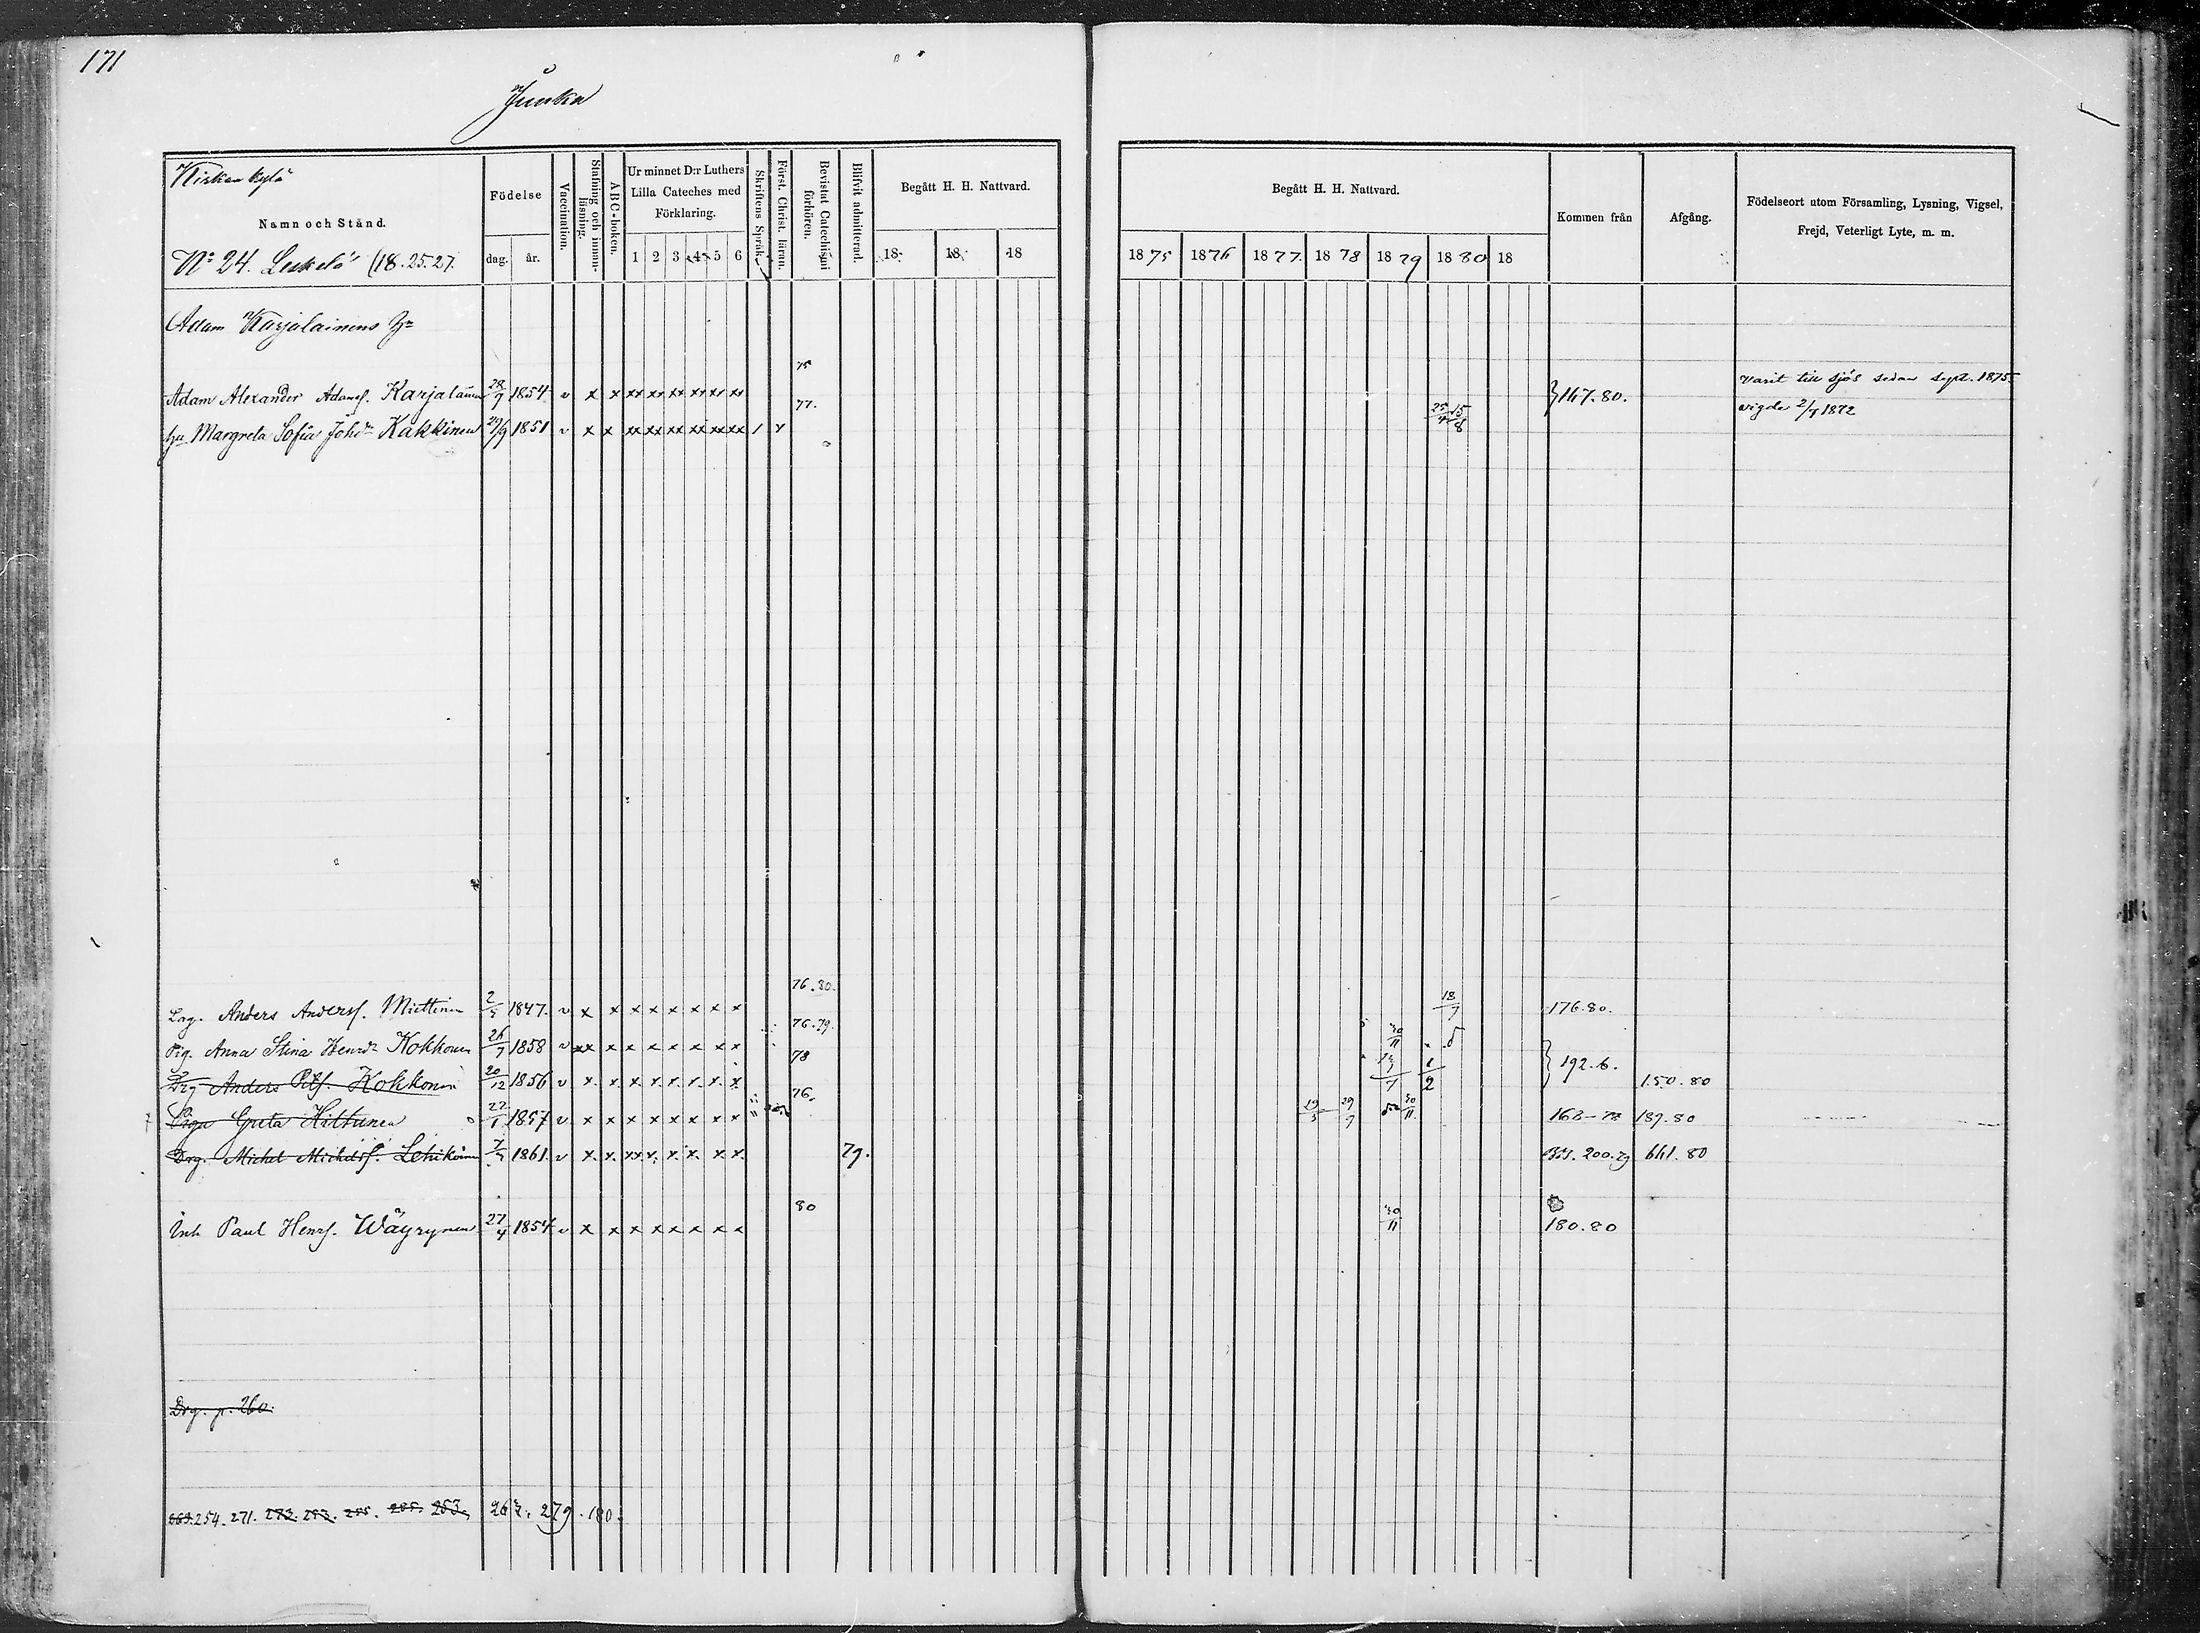 171
Junka
Kirkon kylä
Namn och Stånd.
No 24. Leskelä (18.25.27.
Födelse
dag. år.
Vaccination.
Stafning och innanläsning.
ABC-boken.
Ur minnet D:r Luthers Lilla Cateches med Förklaring.
1 2 3 4 5 6
Skriftens Språk.
Först. Christ. läran.
Bevistat Catechismi förhören.
Blifvit admitterad.
Begått H. H. Nattvard.
18 18 18
Begått H. H. Nattvard.
1875 1876 1877 1878 1879 1880 18
Kommen från
Afgång.
Födelseort utom Församling, Lysning, Vigsel, Frejd, Veterligt Lyte, m. m.
Adam Karjalainens
75
Adam Alexander Adamsf. Karjalainen 28/9 1854 v x x xx xx xx xx xx xx 147.80. Varit till sjös sedan sept. 1875
77.
hu Margreta Sofia Johdr Kakkinen 27/9 1851 v x x xx xx xx xx xx xx 25/4 15/8 vigde 2/7 1872
76.80.
Lrg. Anders Andersf. Miettinen 1847. v x x x x x x x x 18/7 176.80.
76.79.
Pig. Anna Stina Henrdr Kokkonen 26/7 1858 v xx x x x x x x x 30/11
78
Drg Anders Petf. Kokkonen 20/12 1856 v x. x. x. x. x. x. x. x. 1/2 192.6. 150.80
76.
Piga Greta Hiltunen 1857 v x x x x x x x x 29/7 30/11 189.80
Drg. Michel Michelsf. Lehikoinen 1861. v x. x. xx x. x. x. x. x. 79. 200.79 641.80
80
Inh Paul Henrf. Wäyrynen 27/4 1854 v x x x x x x x x 30/11 180.80
Drg. p. 260.
254. 271. 272. 253. 279. 180.